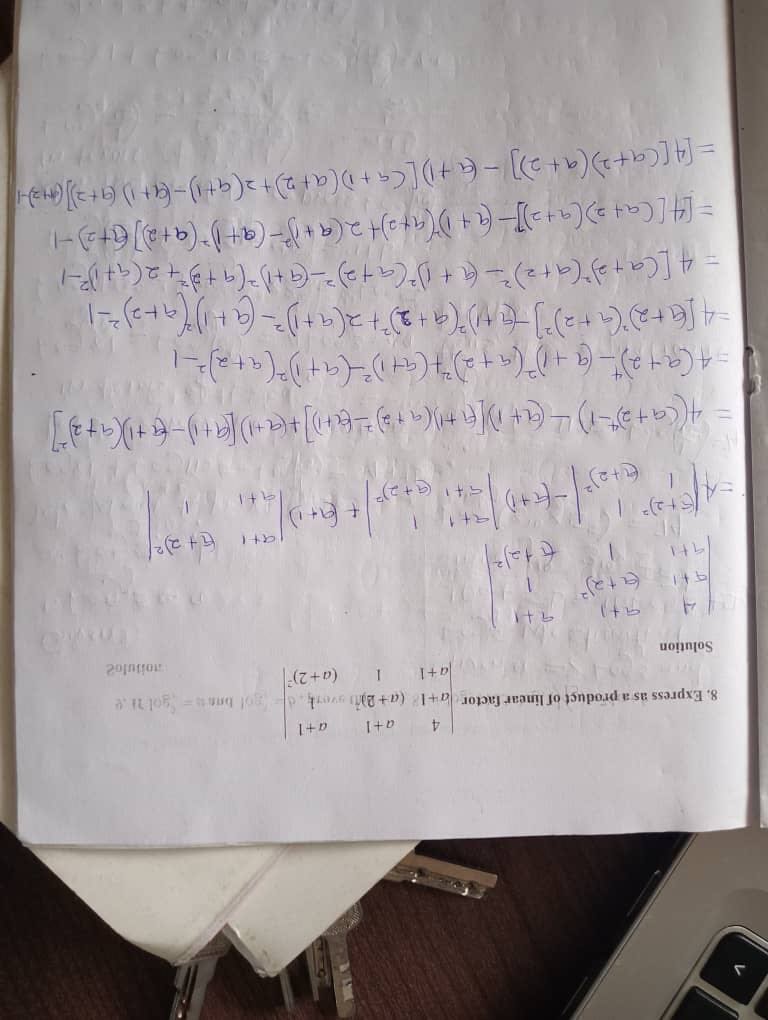 4 a+1 a+1
8. Express as a product of linear factor a+1 (a+2)² 1
a+1 1 (a+2)²
Solution
4 a+1 a+1
a+1 (a+2)² 1
a+1 1 (a+2)²
= 4 |(a+2)² 1| - (a+1) |a+1 1| + (a+1) |a+1 (a+2)²|
|1 (a+2)²| |a+1 (a+2)²| |a+1 1|
= 4((a+2)⁴-1) - (a+1)[(a+1)(a+2)²-(a+1)]+(a+1)[(a+1)-(a+1)(a+2)²]
= 4(a+2)⁴-(a+1)²(a+2)²+(a+1)²-(a+1)²(a+2)²-1
= 4[(a+2)²(a+2)²]-(a+1)²(a+2)²+2(a+1)²-(a+1)²(a+2)²-1
= 4[(a+2)²(a+2)²-(a+1)²(a+2)²-(a+1)²(a+2)²+2(a+1)²-1
= [4[(a+2)(a+2)]-(a+1)²(a+2)+2(a+1)²-(a+1)²(a+2)](a+2)-1
= [4[(a+2)(a+2)]-(a+1)[(a+1)(a+2)+2(a+1)-(a+1)(a+2)](a+2)-1